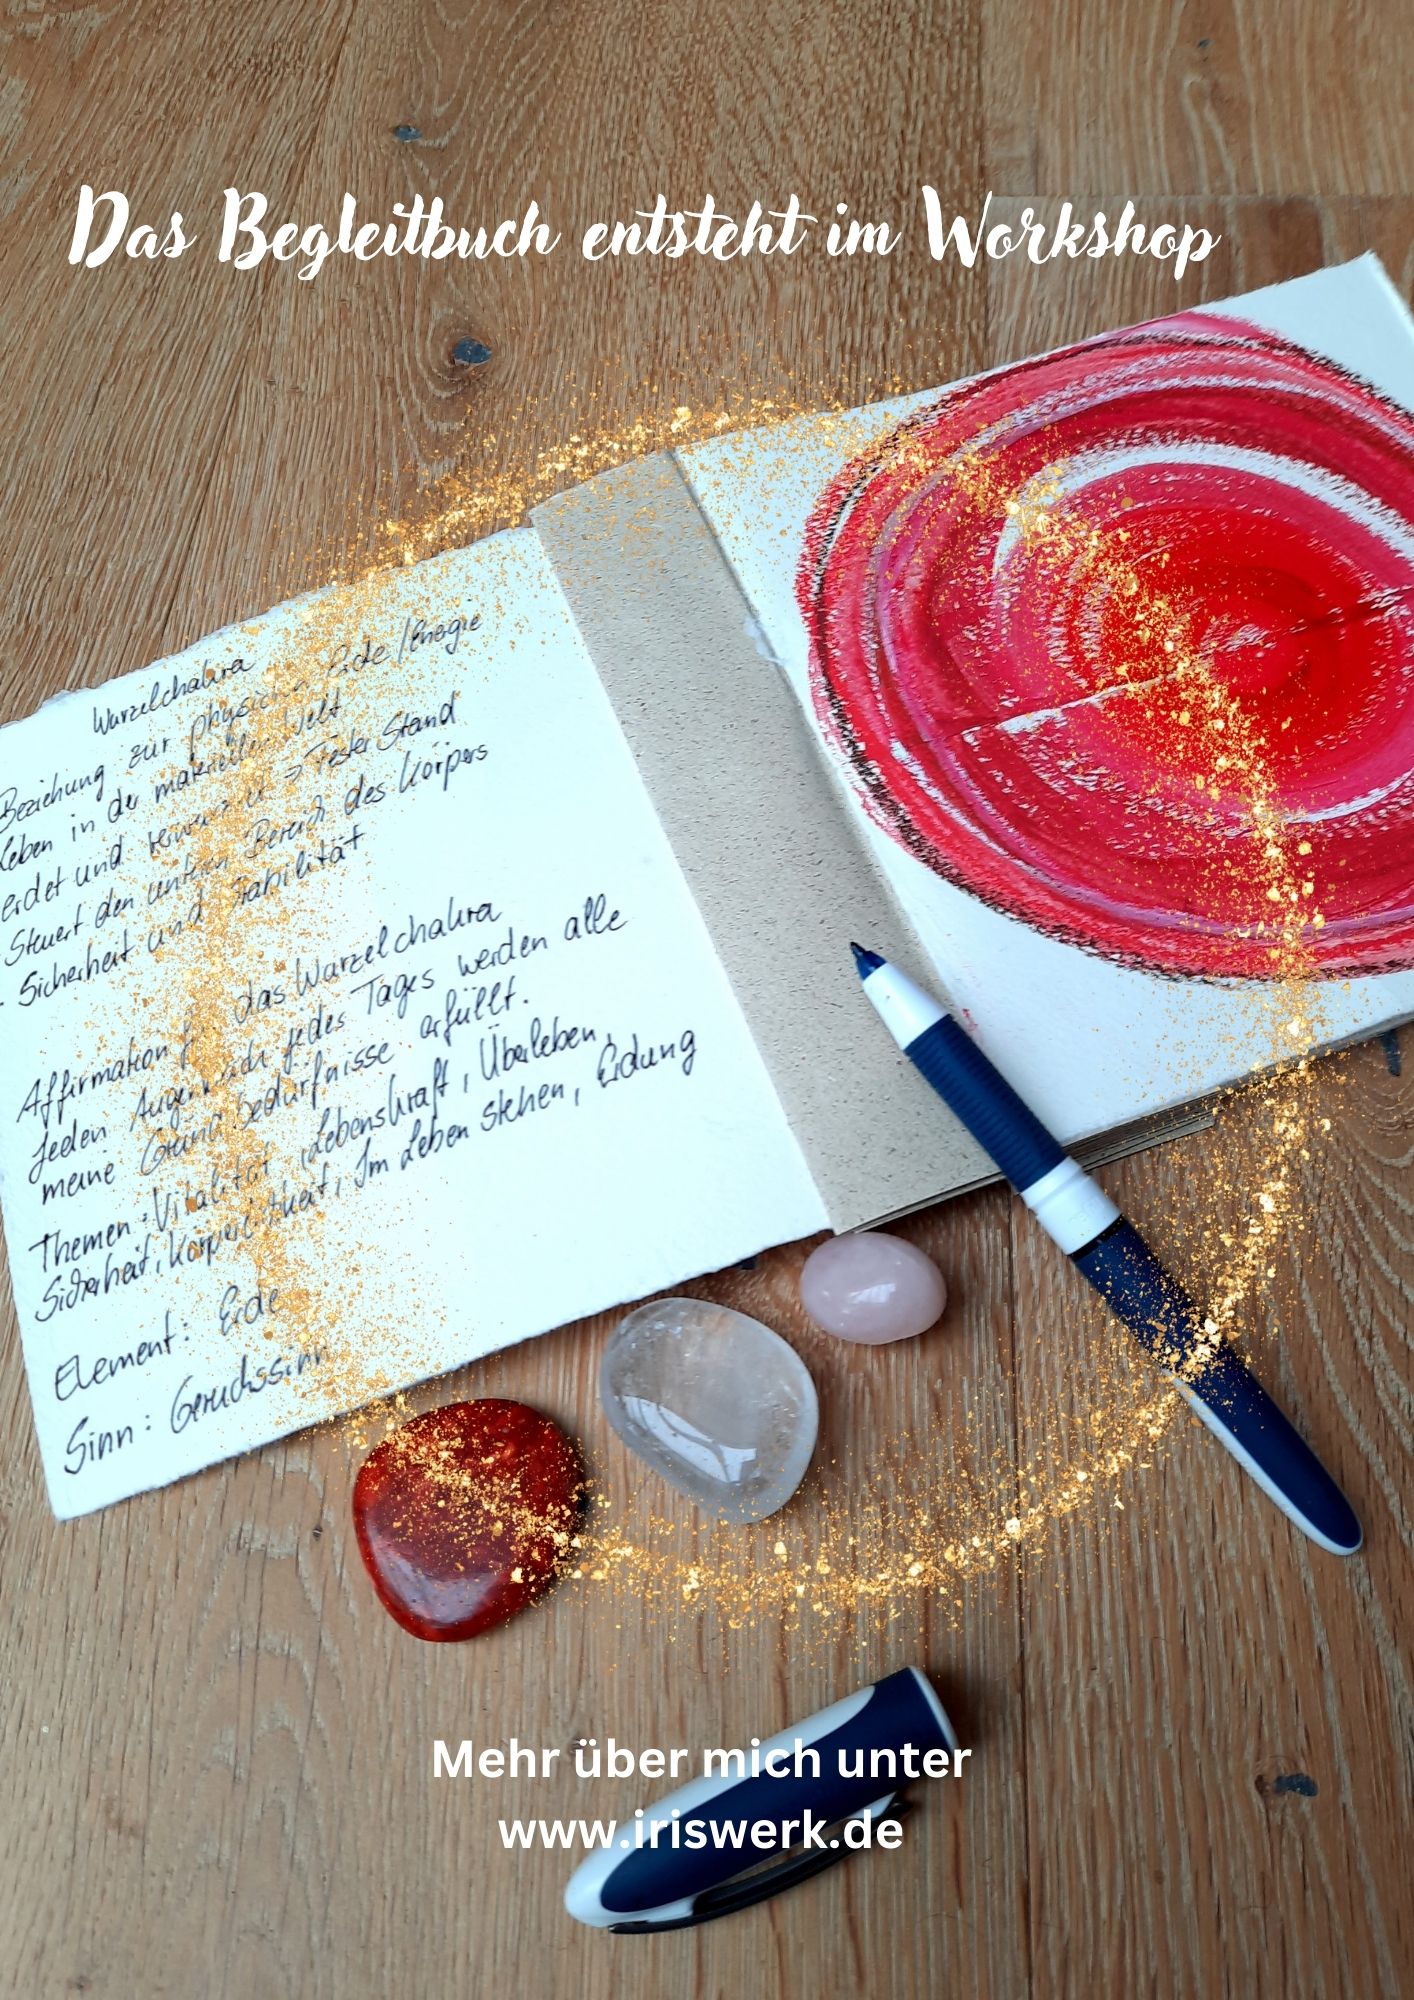 Das Begleitbuch entsteht im Workshop
Wurzelchakra
Beziehung zur physischen Erde/Energie
Leben in der materiellen Welt
erdet und → Fester Stand
Steuert den unteren Bereich des Körpers
- Sicherheit und Stabilität
Affirmation f. das Wurzelchakra
Jeden Augenblick jedes Tages werden alle
meine Grundbedürfnisse erfüllt.
Themen: Vitalität, Lebenskraft, Überleben,
Sicherheit, Körperlichkeit, Im Leben stehen, Erdung
Element: Erde
Sinn: Geruchssinn
Mehr über mich unter
www.iriswerk.de